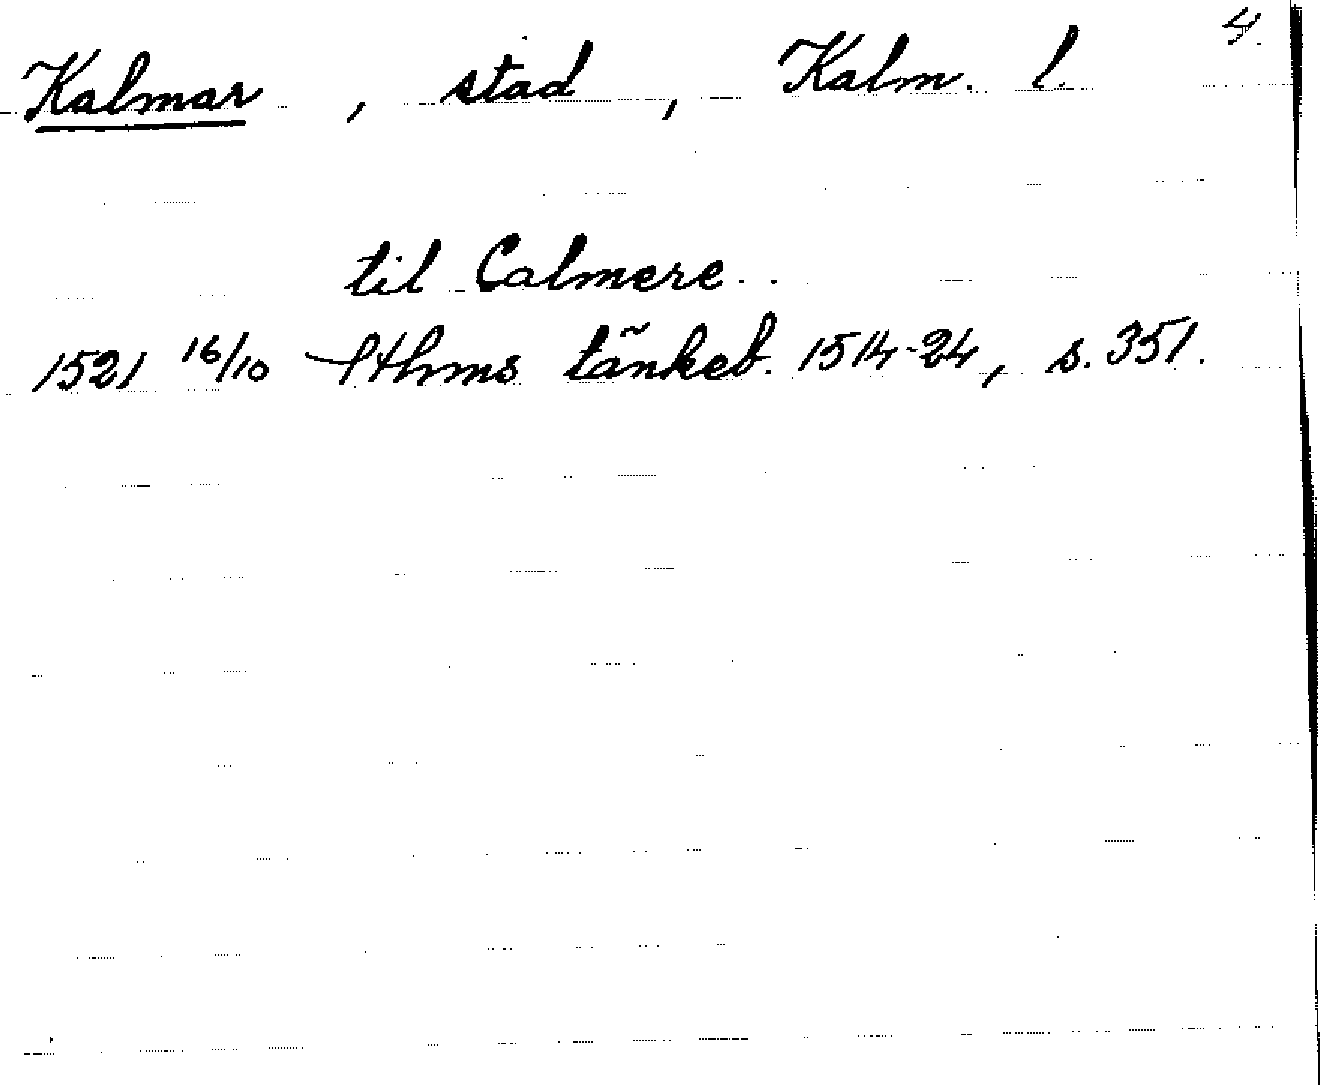 4.
Kalmar, stad, Kalm. l.
til Calmere
1521 16/10 Sthms tänkeb. 1514-24, s. 351.